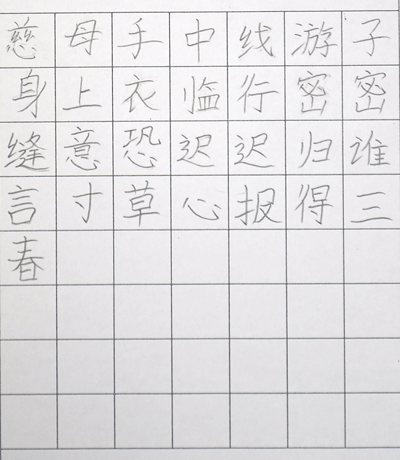 慈母手中线游子
身上衣临行密密
缝意恐迟迟归谁
言寸草心报得三
春